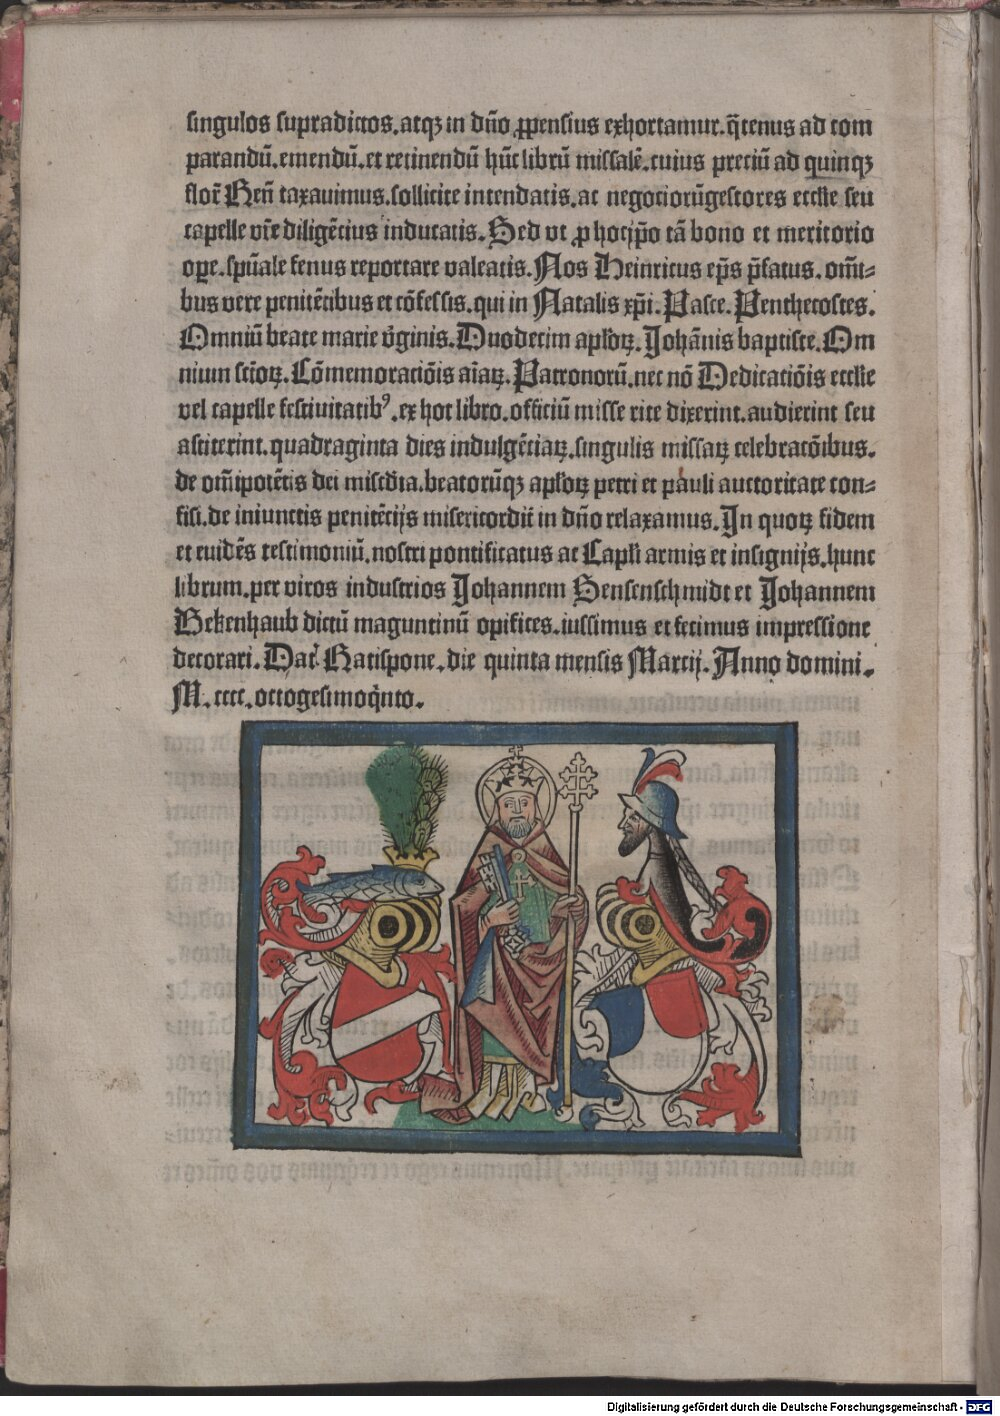 singulos supradictos.atqꝫ in dño ꝓpensius exhortamur.q̃tenus ad com
parandũ.emendũ.et retinendũ hũc librũ missalẽ.cuius preciũ ad quinqꝫ
flor̃ Ren̄ taxauimus.sollicite intendatis.ac negociorũgestores eccl̃ie seu
capelle vr̃e diligẽcius inducatis.Sed vt ꝓ hocip̃o tã bono et meritorio
oꝑe.sp̃uale fenus reportare valeatis.Nos Heinricus ep̃s p̃fatus.om̃i⸗
bus vere penitẽtibus et cõfessis.qui in Natalis xp̃i.Pasce.Penthecostes.
Omniũ beate marie ṽginis.Duodecim apl̃oꝝ.Johãnis baptiste.Om
nium sc̃oꝝ.Cõmemoraciõis aĩaꝝ.Patronorũ.nec nõ Dedicatiõis eccl̃ie
vel capelle festiuitatibꝰ.ex hoc libro.officiũ misse rite dixerint.audierint seu
astiterint.quadraginta dies indulgẽciaꝝ.singulis missaꝝ celebracõibus.
de om̃ipotẽtis dei mĩcdĩa.beatorũqꝫ apl̃oꝝ petri et pauli auctoritate con⸗
fisi.de iniunctis penitẽcijs misericordit̃ in dño relaxamus.In quoꝝ fidem
et euidẽs testimoniũ.nostri pontificatus ac Capl̃i armis et insignijs.hunc
librum.per viros industrios Johannem Sensenschmidt et Johannem
Bekenhaub dictũ maguntinũ opifices.iussimus et fecimus impressione
decorari.Dat̃ Ratispone.die quinta mensis Marcij.Anno domini.
M.cccc.octogesimoq̃nto.
Digitalisierung gefördert durch die Deutsche Forschungsgemeinschaft - DFG